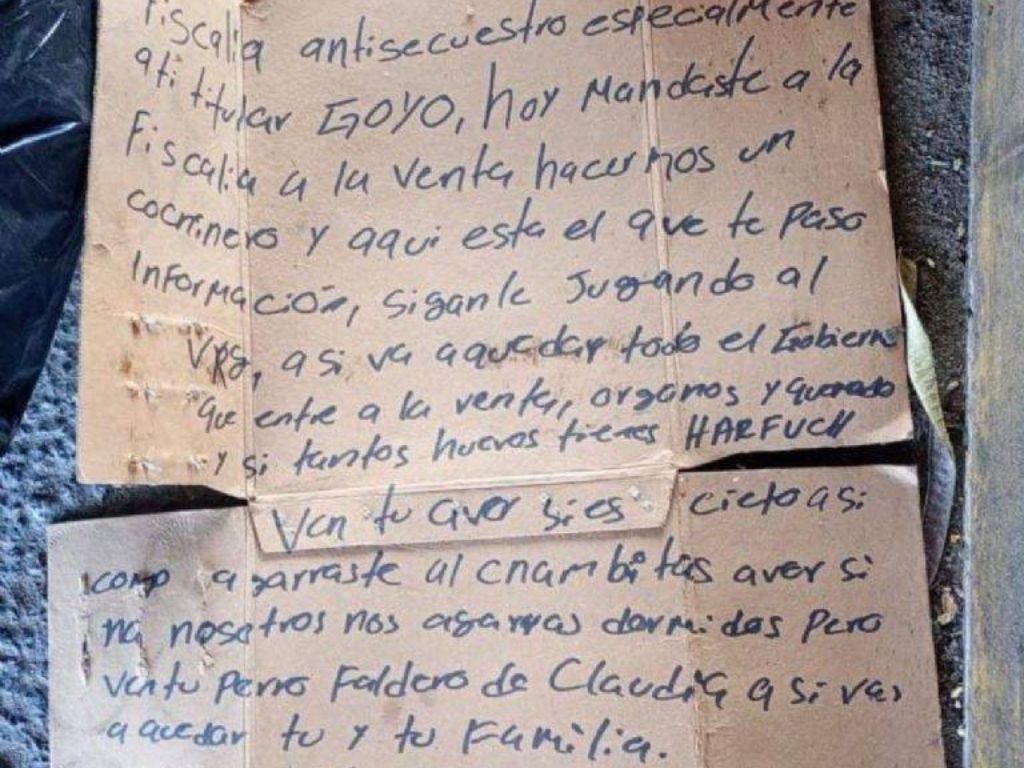 Fiscalia antisecuestro especialmente
ati titular GOYO, hoy Mandaste a la
Fiscalia a la venta hacernos un
cocrinero y aqui esta el que te paso
Información, siganle Jugando al
VRg, asi va a quedar todo el Gobierno
que entre a la venta, organos y
y si tantos huevos tienes HARFUCH
Ven tu aver si es cieto asi
como agarraste al cnambitas aver si
na nosotros nos agarras dormidos pero
ven tu perro Faldero de Claudia asi vas
a quedar tu y tu Familia.